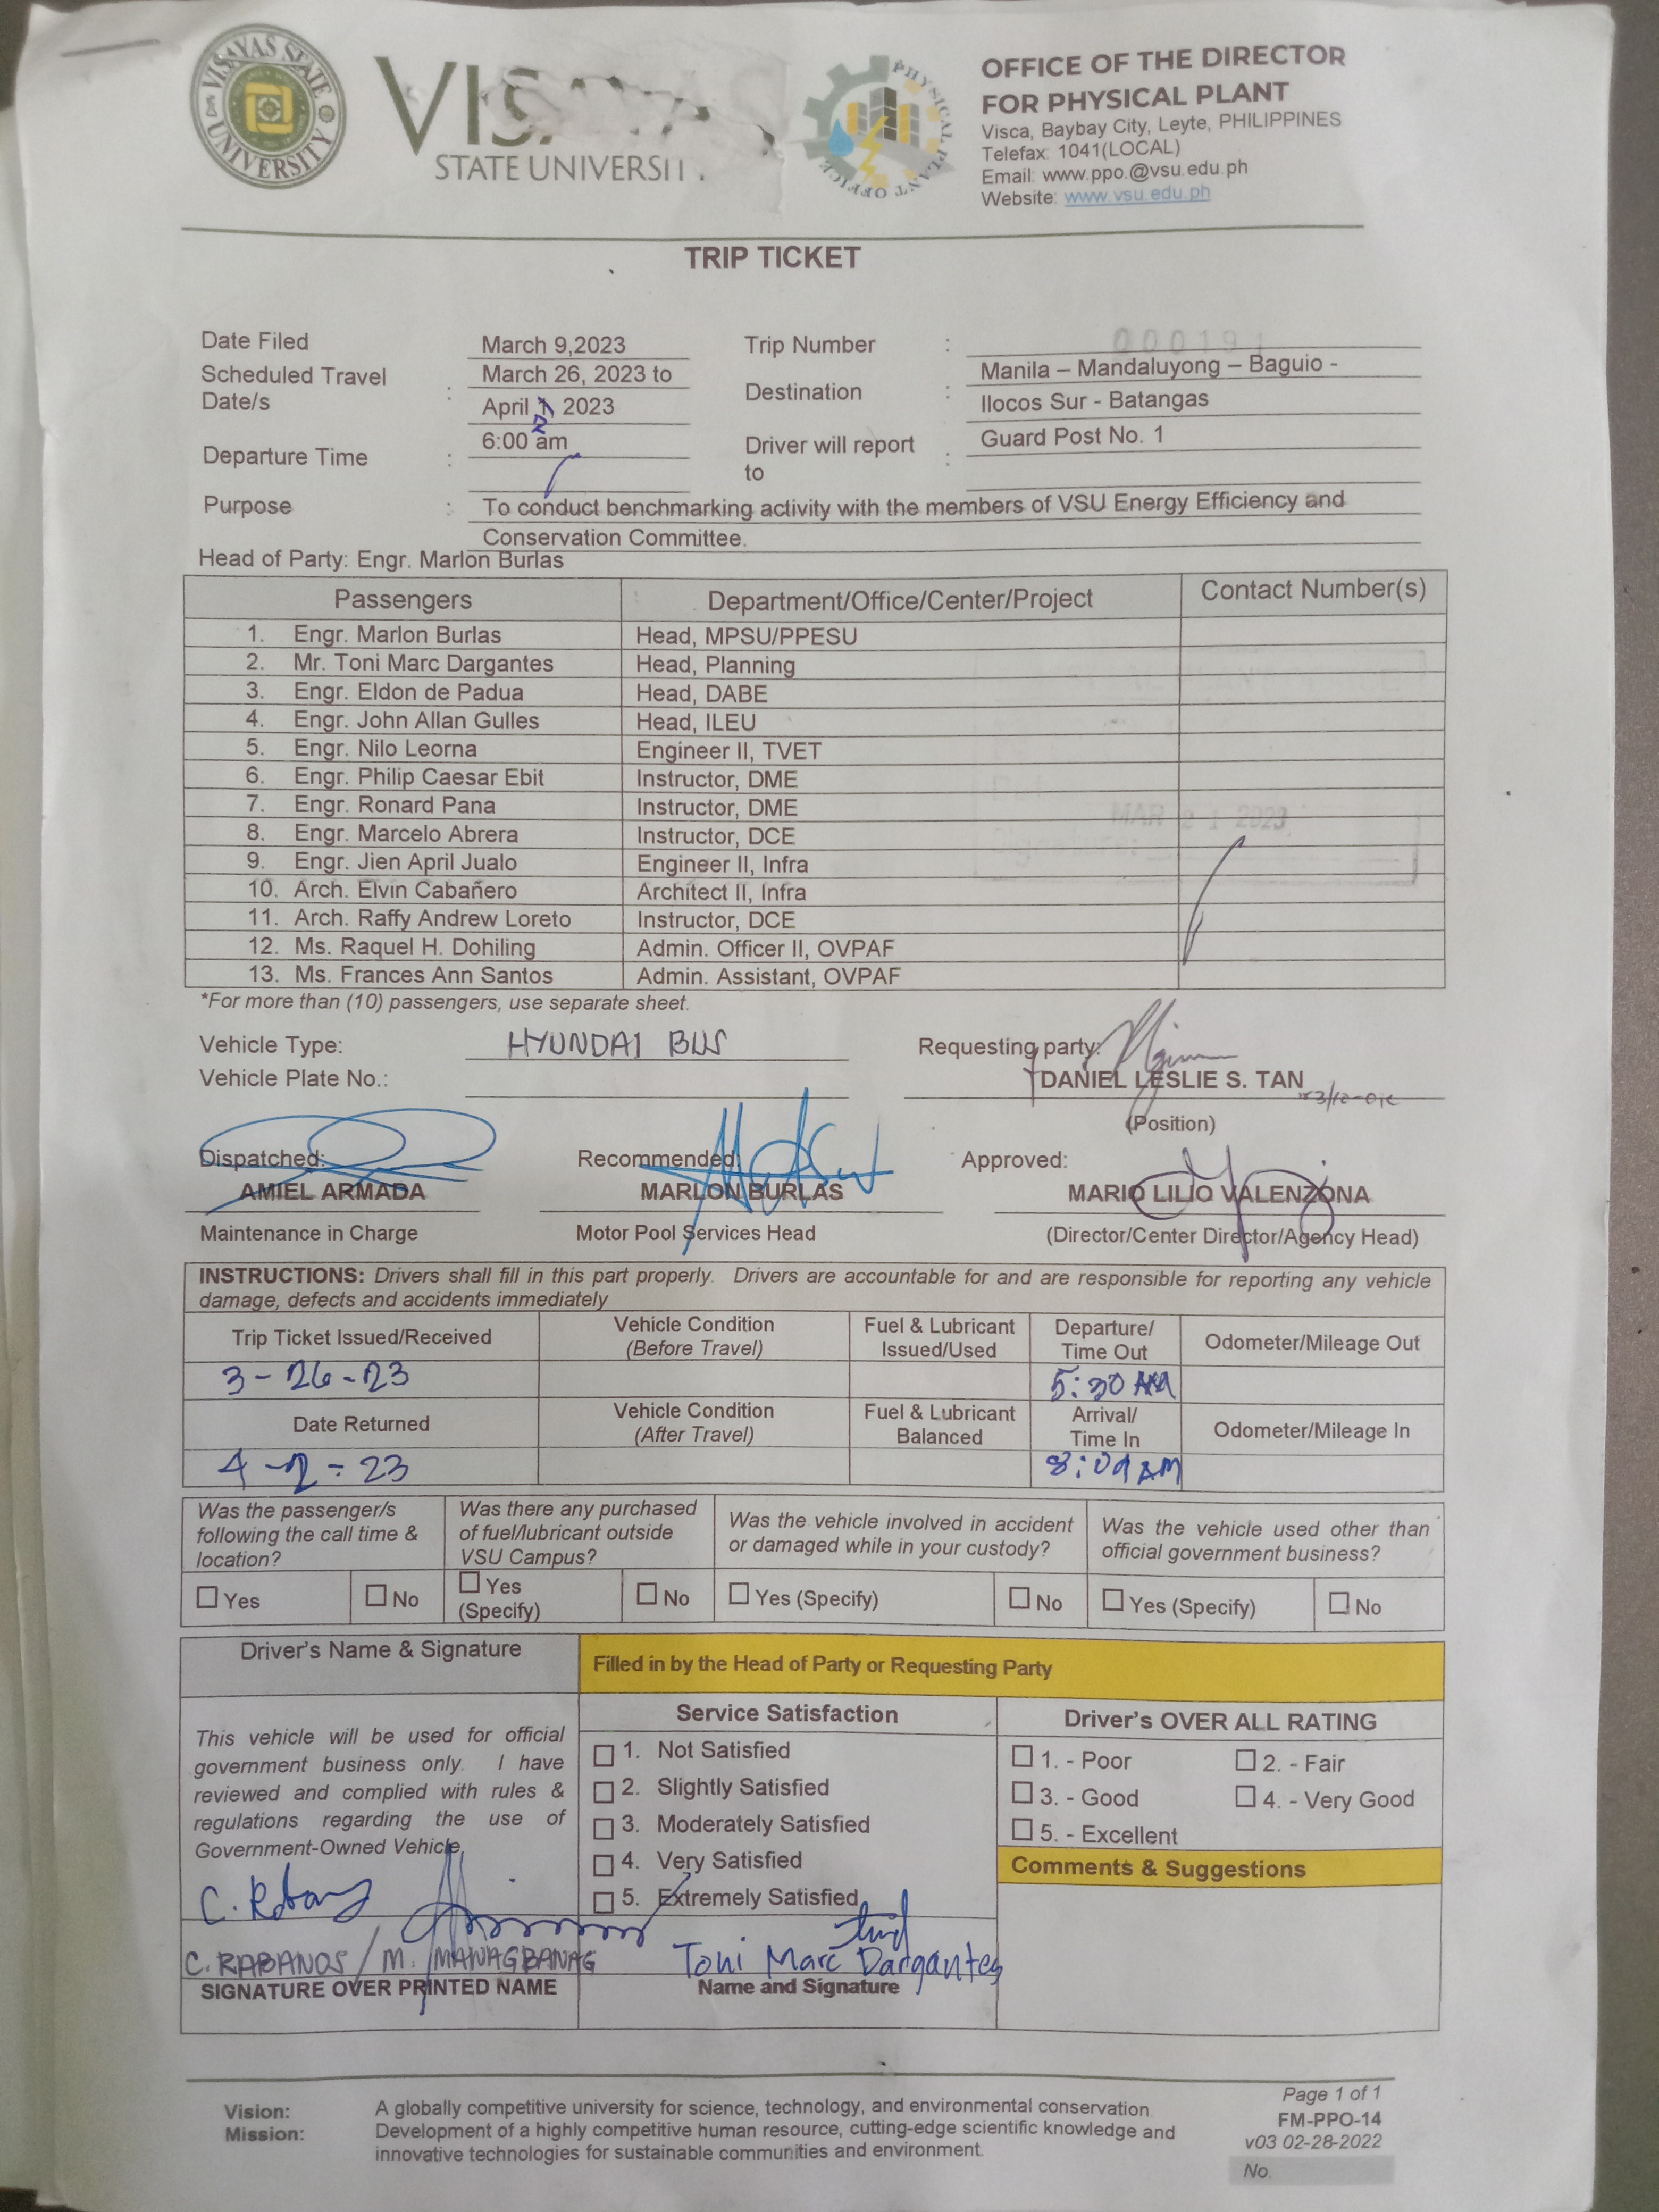 VISAYAS STATE UNIVERSITY
STATE UNIVERSIT
PHYSICAL PLANT OFFICE
OFFICE OF THE DIRECTOR
FOR PHYSICAL PLANT
Visca, Baybay City, Leyte, PHILIPPINES
Telefax: 1041(LOCAL)
Email: www.ppo.@vsu.edu.ph
Website: www.vsu.edu.ph
TRIP TICKET
Date Filed March 9,2023 Trip Number :
Scheduled Travel Date/s : March 26, 2023 to April 2 2023
Destination : Manila – Mandaluyong – Baguio -
Ilocos Sur - Batangas
Departure Time : 6:00 am Driver will report to : Guard Post No. 1
Purpose : To conduct benchmarking activity with the members of VSU Energy Efficiency and
Conservation Committee.
Head of Party: Engr. Marlon Burlas
Passengers Department/Office/Center/Project Contact Number(s)
1. Engr. Marlon Burlas Head, MPSU/PPESU
2. Mr. Toni Marc Dargantes Head, Planning
3. Engr. Eldon de Padua Head, DABE
4. Engr. John Allan Gulles Head, ILEU
5. Engr. Nilo Leorna Engineer II, TVET
6. Engr. Philip Caesar Ebit Instructor, DME
7. Engr. Ronard Pana Instructor, DME
8. Engr. Marcelo Abrera Instructor, DCE
9. Engr. Jien April Jualo Engineer II, Infra
10. Arch. Elvin Cabañero Architect II, Infra
11. Arch. Raffy Andrew Loreto Instructor, DCE
12. Ms. Raquel H. Dohiling Admin. Officer II, OVPAF
13. Ms. Frances Ann Santos Admin. Assistant, OVPAF
MAR 21 2023
*For more than (10) passengers, use separate sheet.
Vehicle Type: HYUNDAI BUS Requesting party:
Vehicle Plate No.: DANIEL LESLIE S. TAN
(Position)
Dispatched: Recommended: Approved:
AMIEL ARMADA MARLON BURLAS MARIO LILIO VALENZONA
Maintenance in Charge Motor Pool Services Head (Director/Center Director/Agency Head)
INSTRUCTIONS: Drivers shall fill in this part properly. Drivers are accountable for and are responsible for reporting any vehicle
damage, defects and accidents immediately
Trip Ticket Issued/Received Vehicle Condition (Before Travel) Fuel & Lubricant Issued/Used Departure/ Time Out Odometer/Mileage Out
3-26-23 5:30 AM
Date Returned Vehicle Condition (After Travel) Fuel & Lubricant Balanced Arrival/ Time In Odometer/Mileage In
4-2-23 AM
Was the passenger/s following the call time & location?
Was there any purchased of fuel/lubricant outside VSU Campus?
Was the vehicle involved in accident or damaged while in your custody?
Was the vehicle used other than official government business?
Yes No Yes (Specify) No Yes (Specify) No Yes (Specify) No
Driver's Name & Signature Filled in by the Head of Party or Requesting Party
Service Satisfaction Driver's OVER ALL RATING
This vehicle will be used for official
government business only. I have
reviewed and complied with rules &
regulations regarding the use of
Government-Owned Vehicle.
1. Not Satisfied
2. Slightly Satisfied
3. Moderately Satisfied
4. Very Satisfied
5. Extremely Satisfied
1. - Poor 2. - Fair
3. - Good 4. - Very Good
5. - Excellent
Comments & Suggestions
C. RABANOS / M. MANAGBANAG Toni Marc Dargantes
SIGNATURE OVER PRINTED NAME Name and Signature
Vision: A globally competitive university for science, technology, and environmental conservation.
Mission: Development of a highly competitive human resource, cutting-edge scientific knowledge and
innovative technologies for sustainable communities and environment.
Page 1 of 1
FM-PPO-14
v03 02-28-2022
No.